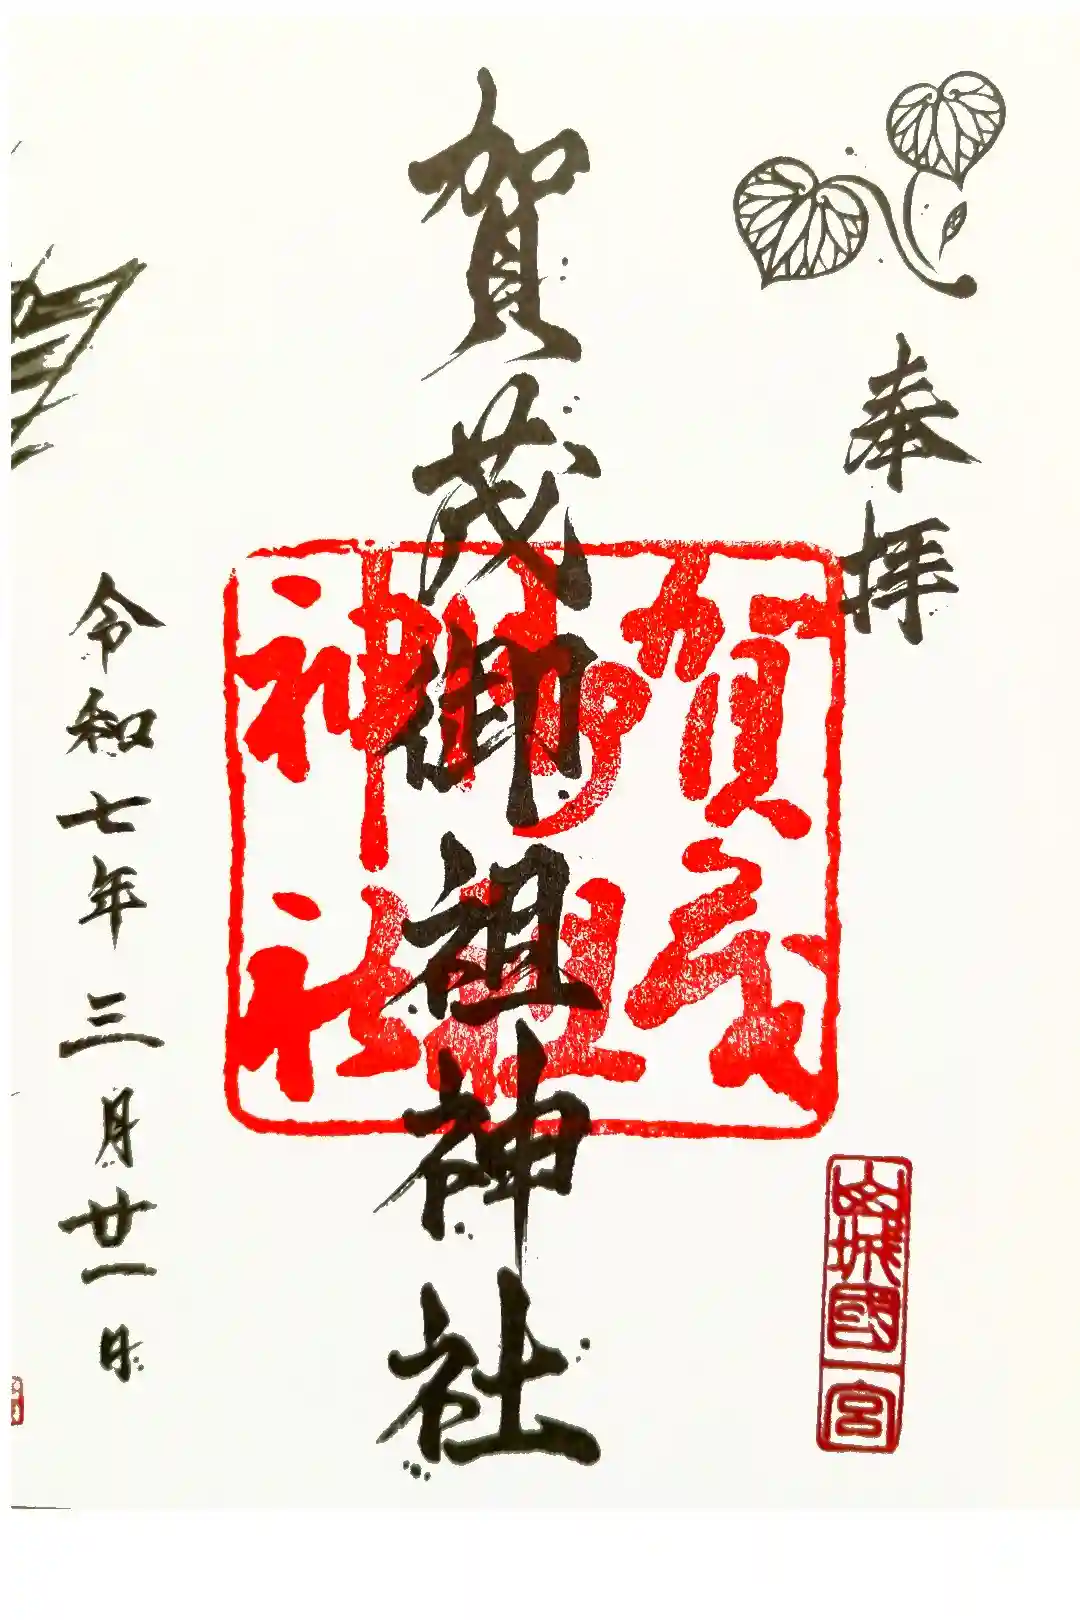 奉拝
山城國一宮
賀茂
御祖
神社
賀茂御祖神社
令和七年三月廿一日